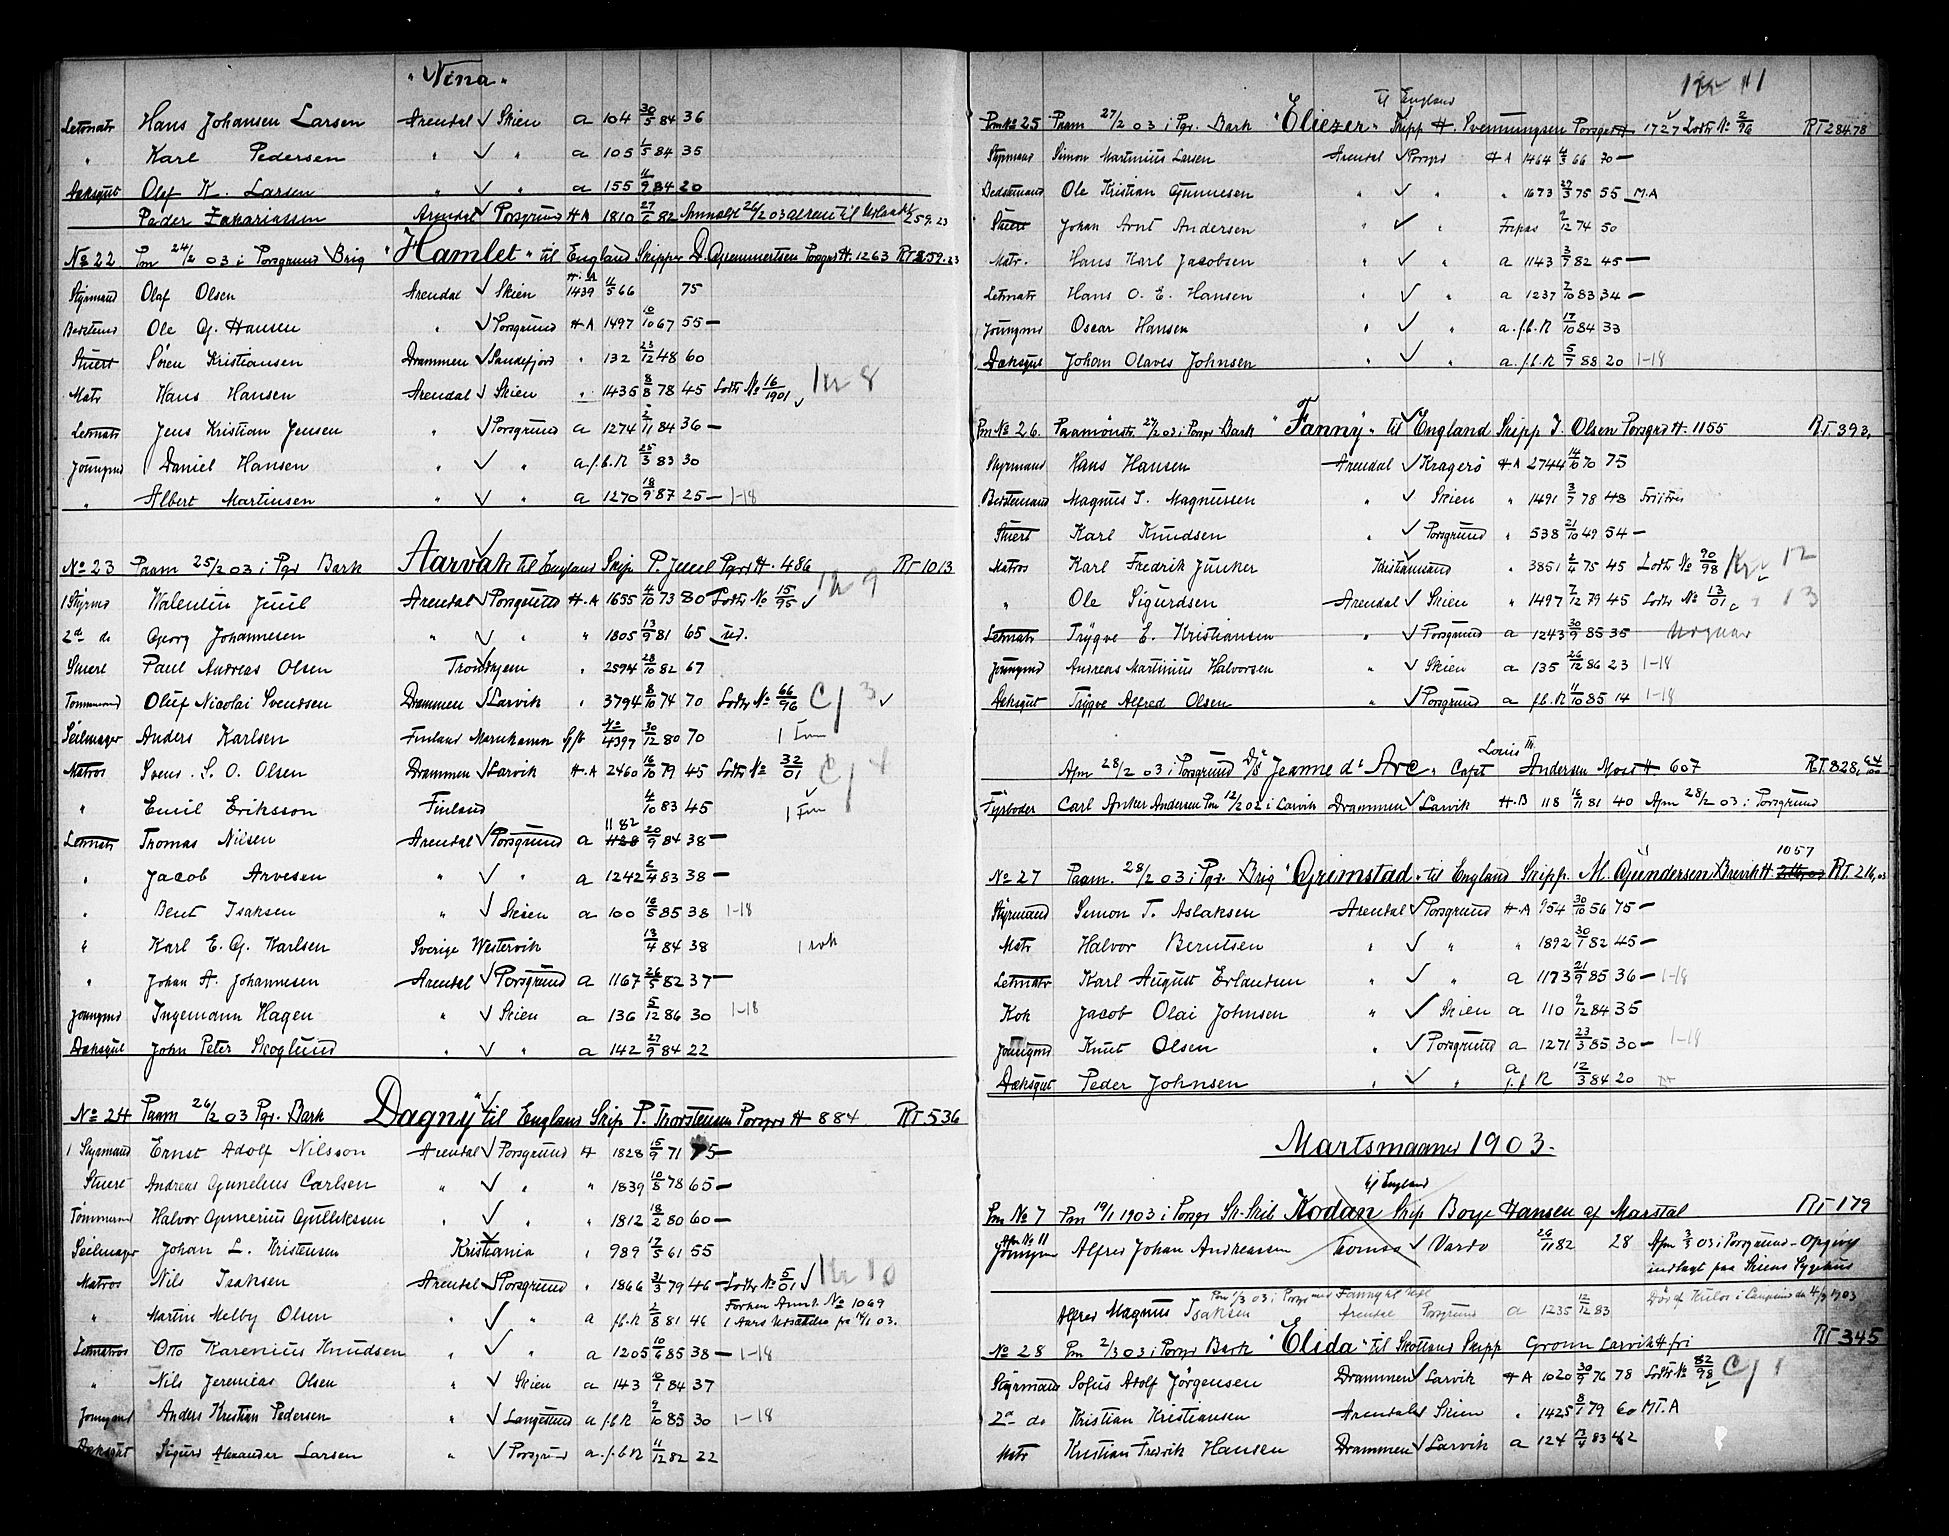 "Nina"
Letmatr Hans Johansen Larsen Arendal ✓ Skien a 104 30/5 84 36
" Karl Pedersen " ✓ " a 105 1/5 84 35
Dæksgut Olaf K. Larsen " ✓ " a 155 11/9 84 20
Peder Zakariassen Arendal ✓ Porsgrund H.A 1810 27/6 82 Anmeldt 26/2 03 til 259.23
No 22 Pm 24/2 03 i Porsgrund Brig "Hamlet" til England Skipper D. Gemmertsen Porsgrd H. 1263 RT 259.23
Styrmand Olaf Olsen Arendal ✓ Skien H.A 1439 11/5 66 75
Bedstmd Ole G. Hansen " ✓ Porsgrund H.A 1497 10/10 67 55 —
Stuert Sören Kristiansen Drammen ✓ Sandefjord " 132 23/12 48 60
Matr Hans Hansen Arendal ✓ Skien " 1435 8/8 78 45 Lodtr No 16/1901 ✓ Kr 8
Letmatr Jens Kristian Jensen " ✓ Porsgrund a 1274 2/11 84 36 —
Joungmd Daniel Hansen " ✓ " a.f.b.R 25/3 83 30
" Albert Martinsen " ✓ " a 1270 18/9 87 25 — 1-18
No 23 Paam 25/2 03 i Pgr Bark Aarvak til England Skip. P. Juul Pgrd H. 486 RT 1013
1 Styrmd Walentin Juul Arendal ✓ Porsgrund H.A 1655 4/10 73 80 Lodtr No 15/95 ✓ Kr 9
2de do Georg Johannesen " ✓ " " 1805 13/9 81 65 ud.
Stuert Paul Andreas Olsen Trondhjem " 2594 28/10 82 67
Tømmermd Oluf Nicolai Svendsen Drammen ✓ Larvik " 3794 8/10 74 70 Lodtr No 66/96 C/ 3 ✓
Seilmager Anders Karlsen Finland Mariehamn No 4397 30/12 80 70 1 Fin
Matros Svend. S. O. Olsen Drammen ✓ Larvik H.A 2460 16/10 79 45 Lodtr No 32/01 C/ 4
" Emil Eriksson Finland 4/10 83 45 1 Fin
Letmatr Thomas Nilsen Arendal ✓ Porsgrund a 1182 20/9 84 38 —
" Jacob Arvesen " ✓ " a 1242 2/4 83 38 —
" Bent Isaksen " ✓ Skien a 100 16/5 85 38 1-18
" Karl E. G. Karlsen Sverige Westervik 13/4 84 38
" Johan A. Johannesen Arendal ✓ Porsgrund a 1167 26/5 82 37 —
Joungmd Ingemann Hagen " ✓ Skien a 136 5/12 86 30 1-18
Dæksgut John Peter Skoglund " ✓ " a 142 27/9 84 22
No 24 Paam 26/2 03 Pgr. Bark Dagny til England Skip P. Thorstensen Porsgr H 884 RT 536
1 Styrmand Ernst Adolf Nilsson Arendal ✓ Porsgrund H 1828 15/9 71 75 —
Stuert Andreas Gunelius Carlsen " ✓ " " 1839 10/8 78 65 —
Tømmermd Halvor Gunerius Gulliksen " ✓ " " 1812 18/2 80 60 —
Seilmager Johan L. Kristensen Kristiania " 989 17/5 61 55
Matros Nils Isaksen Arendal ✓ Porsgrund " 1866 31/3 79 46 — Lodtr No 5/01 ✓ Kr 10
" Martin Melby Olsen " ✓ " a f.b.R 2/8 81 46 Forhen Annt. No 1069
1 Aars Udsættelse fra 14/1 03.
Letmatros Otto Karenius Knudsen " ✓ " a 1205 10/6 85 38 — 1-18
" Nils Jeremias Olsen " ✓ Skien a 143 10/1 84 37
Joungmd Anders Kristian Pedersen " ✓ Langesund a f.b.R 9/10 85 30 1-18
Dæksgut Sigurd Alexander Larsen " ✓ Porsgrund a.f.b.R 11/12 82 22
11
til England
Pm No 25 Paam 27/2 03 i Pgr. Bark "Eliezer" Skipp H. Svenningsen Porsgr H 1727 Lodtr No 2/96 RT 284.78
Styrmand Simon Martinius Larsen Arendal ✓ Porsgrd H A 1464 4/3 66 70 —
Bedstemand Ole Kristian Gunnesen " ✓ " " 1673 27/3 75 55 M.A
Stuert Johan Arnt Andersen " ✓ " Forpas 2/12 74 50
Matr. Hans Karl Jacobsen " ✓ " a 1143 3/7 82 45 —
Letmatr Hans O. E. Hansen " ✓ " a 1237 7/10 83 34 —
Joungmd Oscar Hansen " ✓ " a.f.b.R 17/10 84 33
Dæksgut Johan Olaves Johnsen " ✓ " a.f.b.R 5/7 88 20 1-18
Pm No 26. Paamönstr. 27/2 03 i Porsgr Bark "Fanny" til England Skipp J. Olsen Porsgrd H. 1155 RT. 393,
Styrmand Hans Hansen Arendal ✓ Kragerö H A 2744 14/10 70 75
Bedstemand Magnus J. Magnussen " ✓ Skien " 1491 3/7 78 48
Stuert Karl Knudsen ✓ Porsgrund " 538 21/10 49 54 —
Matros Karl Fredrik Junker Kristiansand " 3851 2/4 75 45 Lodtr No 90/98 Kr 12
" Ole Sigurdsen Arendal ✓ Skien " 1497 7/12 79 45 Lodtr No 13/01 " 13
Letmatr Trygve E. Kristiansen " ✓ Porsgrund a 1243 30/9 85 35
Joungmd Andreas Martinius Halvorsen " ✓ Skien a 135 26/12 86 23 1-18
Dæksgut Trygve Alfred Olsen " ✓ Porsgrund a f.b.R 11/10 85 14 1-18
Louis III
Afm 28/2 03 i Porsgrund D/S Jeanne d'Arc. Capt Andersen Moss H 607 RT. 328, 64/100
Fyrböder Carl Anker Andersen Pm 12/2 02 i Larvik Drammen ✓ Larvik H.B 118 16/11 81 40 Afm 28/2 03 i Porsgrund
No 27 Paam. 28/2 03 i Pgr. Brig "Grimstad" til England Skipp. M. Gundersen Brevik H 1057 RT 216,03
Styrmand Simon T. Aslaksen Arendal ✓ Porsgrund H.A 954 30/10 56 75 —
Matr Halvor Berntsen " ✓ " " 1892 30/1 82 45 —
Letmatr Karl August Erlandsen " ✓ " a 1173 21/9 85 36 — 1-18
Kok Jacob Olai Johnsen " ✓ Skien a 110 9/12 84 35
Joungmd Knut Olsen " ✓ Porsgrund a 1271 23/3 85 30 — 1-18
Dæksgut Peder Johnsen " ✓ " a f.f R 12/3 84 20
Martsmaaned 1903.
til England
Pm No 7 Pm 19/1 1903 i Porsgr Sk-Skib Kodan Skip Borge Hansen af Marstal RT 179
Afm No 11
Joungm Alfred Johan Andreassen Tromsø ✓ Vardø 26/11 82 28 Afm 3/3 03 i Porsgrund - Opgivs
indlagt paa Skiens Sygehus
Alfred Magnus Isaksen Arendal Porsgrund a 1235 12/12 83
No 28 Pm 2/3 03 i Porsgr Bark "Elida" til Skotland Skipp Gronn Larvik H fri RT 345
Styrmand Sofus Adolf Jörgensen Drammen ✓ Larvik H A 1020 30/9 76 78 Lodtr No 82/98 C/ 1
2d do Kristian Kristiansen Arendal ✓ Skien " 1425 8/1 79 60 MT.A
Matr Kristian Fredrik Hansen Drammen ✓ Larvik a 124 13/4 83 42